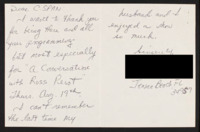 Dear C-Span
I want to thank you
for being there and all
your programming
but most especially
for "A Conversation
with Ross Perot
Thurs. Aug 19th
I can't remember
the last time my
husband and I
enjoyed a show
so much.
Sincerely
Terre Haute